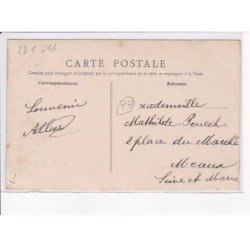 22 E
CARTE POSTALE
Certains pays étrangers n'acceptent pas la correspondance de ce côté, se renseigner à la Poste
Correspondance
Adresse
Souvenir
77
Mademoiselle
Mathilde Pouech
2 place du Marché
Meaux
Seine et Marne